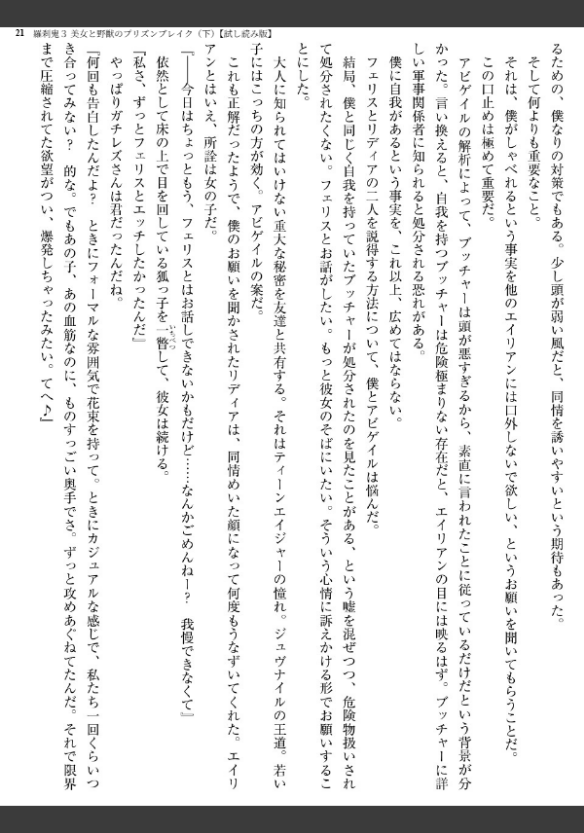 21　羅刹鬼３ 美女と野獣のプリズンブレイク（下）【試し読み版】
るための、僕なりの対策でもある。少し頭が弱い風だと、同情を誘いやすいという期待もあった。
そして何よりも重要なこと。
それは、僕がしゃべれるという事実を他のエイリアンには口外しないで欲しい、というお願いを聞いてもらうことだ。
この口止めは極めて重要だ。
アビゲイルの解析によって、ブッチャーは頭が悪すぎるから、素直に言われたことに従っているだけだという背景が分
かった。言い換えると、自我を持つブッチャーは危険極まりない存在だと、エイリアンの目には映るはず。ブッチャーに詳
しい軍事関係者に知られると処分される恐れがある。
僕に自我があるという事実を、これ以上、広めてはならない。
フェリスとリディアの二人を説得する方法について、僕とアビゲイルは悩んだ。
結局、僕と同じく自我を持っていたブッチャーが処分されたのを見たことがある、という嘘を混ぜつつ、危険物扱いされ
て処分されたくない。フェリスとお話がしたい。もっと彼女のそばにいたい。そういう心情に訴えかける形でお願いするこ
とにした。
大人に知られてはいけない重大な秘密を友達と共有する。それはティーンエイジャーの憧れ。ジュヴナイルの王道。若い
子にはこっちの方が効く。アビゲイルの案だ。
これも正解だったようで、僕のお願いを聞かされたリディアは、同情めいた顔になって何度もうなずいてくれた。エイリ
アンとはいえ、所詮は女の子だ。
『――今日はちょっともう、フェリスとはお話しできないかもだけど……なんかごめんねー？　我慢できなくて』
依然として床の上で目を回している狐っ子を一瞥いちべつして、彼女は続ける。
『私さ、ずっとフェリスとエッチしたかったんだ』
やっぱりガチレズさんは君だったんだね。
『何回も告白したんだよ？　ときにフォーマルな雰囲気で花束を持って。ときにカジュアルな感じで、私たち一回くらいつ
き合ってみない？　的な。でもあの子、あの血筋なのに、ものすっごい奥手でさ。ずっと攻めあぐねてたんだ。それで限界
まで圧縮されてた欲望がつい、爆発しちゃったみたい。てへ♪』